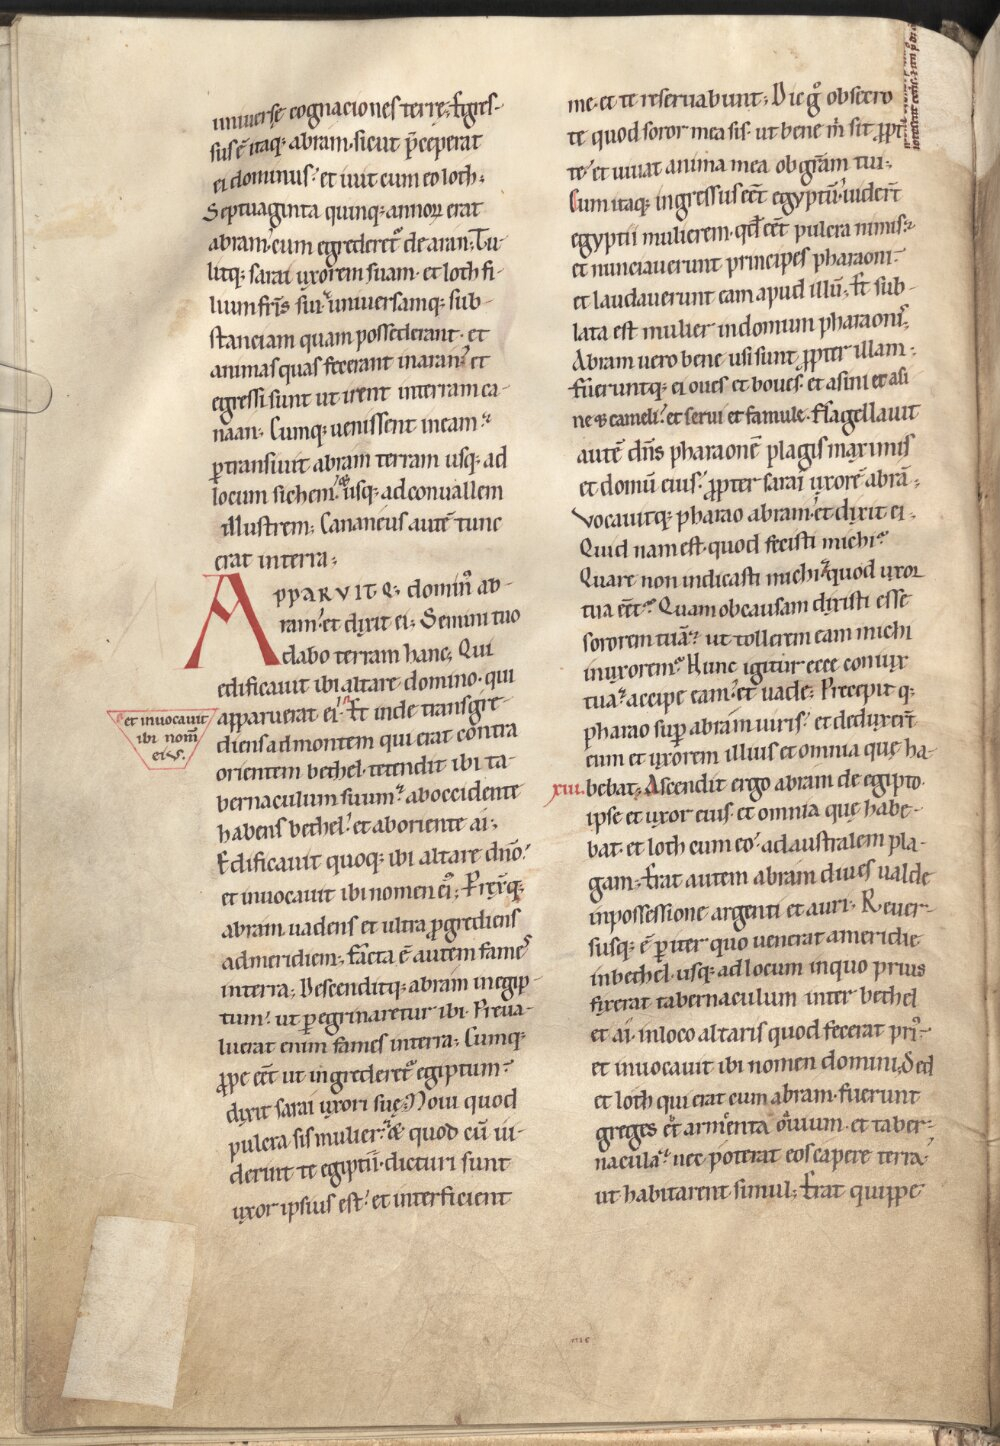 uniuersę cognaciones terrę; Egres-
sus ē itaq; abram. sicut p̄ceperat
ei dominus. et iuit cum eo loth;
Septuaginta quinq; annoꝝ erat
abram. cum egrederet᷑ de aran; Tu-
litq; sarai uxorem suam. et loth fi-
lium fr̄is sui. uniuersamq; sub-
stanciam quam possederant. et
animas quas fecerant in aran. et
egressi sunt ut irent in terram ca-
naan; Cumq; uenissent in eam.
ꝑtransiuit abram terram usq; ad
locum sichem. & usq; ad conuallem
illustrem; Cananeus autē tunc
erat in terra;
APPARVIT Q; dominꝰ ab-
ram. et dixit ei; Semini tuo
dabo terram hanc; Qui
edificauit ibi altare domino. qui
apparuerat ei. Et inde transgre-
diens ad montem qui erat contra
orientem bethel. tetendit ibi ta-
bernaculum suum. ab occidente
habens bethel. et ab oriente ai;
Edificauit quoq; ibi altare dn̄o.
et inuocauit ibi nomen eiꝰ; Prexitq;
abram uadens et ultra ꝓgrediens
ad meridiem; Facta ē autem fames
in terra; Descenditq; abram in egip-
tum. ut ꝑegrinaretur ibi. Preua-
luerat enim fames in terra; Cumq;
ꝓpe eēt ut ingrederet᷑ egiptum.
dixit sarai uxori suę; Noui quod
pulcra sis mulier. & quod cū ui-
derint te egiptii. dicturi sunt
uxor ipsius est. et interficient
et inuocauit
ibi nom̄
eius.
me. et te reseruabunt; Dic gͦ obsecro
te quod soror mea sis. ut bene m̄ sit ꝓpt
te. et uiuat anima mea ob gr̄am tui;
Cum itaq; ingressus eēt egyptū. uider̄t
egyptii mulierem. qđ eēt pulcra nimis.
et nunciauerunt principes pharaoni.
et laudauerunt eam apud illū; Et sub-
lata est mulier in domum pharaonis.
Abram uero bene usi sunt ꝓpter illam;
Fueruntq; ei oues et boues. et asini et asi
ne & cameli. et serui et famule. Flagellauit
autē dn̄s pharaonē plagis maximis
et domū eius. ꝓpter sarai uxorē abrā;
Vocauitq; pharao abram. et dixit ei;
Quid nam est. quod fecisti michi.
Quare non indicasti michi. quod uxor
tua eēt. Quam ob causam dixisti esse
sororem tuā. ut tollerem eam michi
in uxorem. Nunc igitur ecce coniux
tua. accipe eam. et uade; Precepit q;
pharao suꝑ abram uiris. et deduxer̄t
eum et uxorem illius et omnia quę ha-
xiii. bebat; Ascendit ergo abram de egipto.
ipse et uxor eius. et omnia quę habe-
bat. et loth cum eo. ad australem pla-
gam; Erat autem abram diues ualde
in possessione argenti et auri. Reuer-
susq; ē ꝑ iter quo uenerat a meridie
in bethel. usq; ad locum in quo prius
fixerat tabernaculum inter bethel
et ai. in loco altaris quod fecerat priꝰ.
et inuocauit ibi nomen domini; Sed
et loth qui erat cum abram. fuerunt
greges et armenta ouium. et taber-
nacula. nec poterat eos capere terra.
ut habitarent simul; Erat quippe